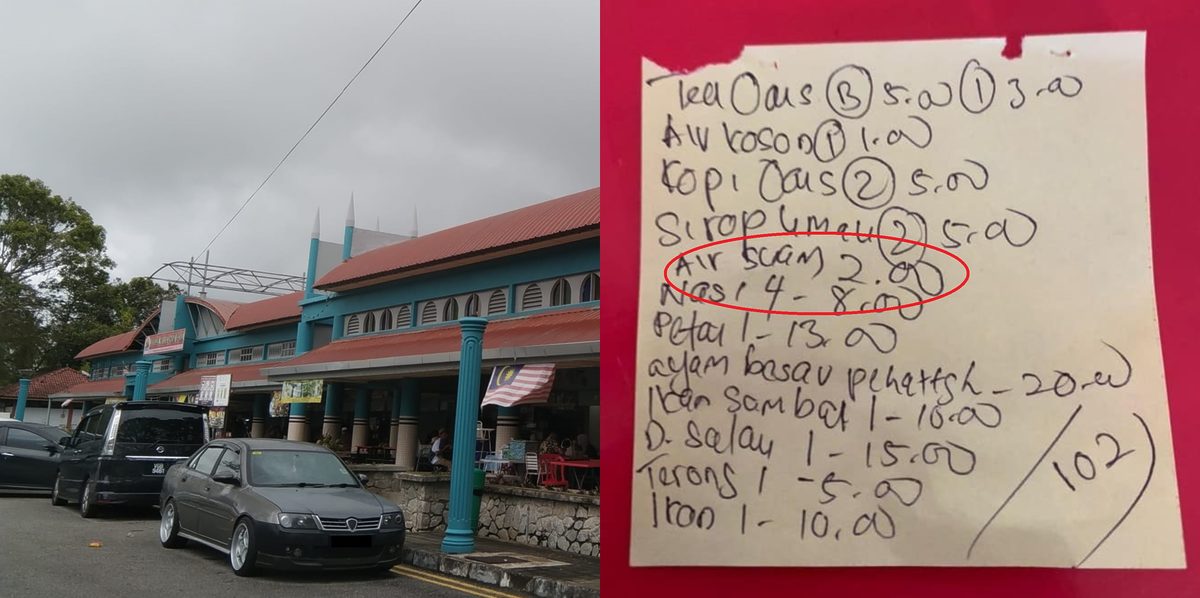 Tea Oais ③ 5.00 ① 3.00
Air Koson ① 1.00
Kopi Oais ② 5.00
Sirop Limau ② 5.00
Air suam 2.00
Nasi 4 - 8.00
Petai 1 - 13.00
ayam basau pehattgh - 20.00
Ikan Sambal 1 - 10.00
D. Salay 1 - 15.00
Terong 1 - 5.00
Ikan 1 - 10.00
102